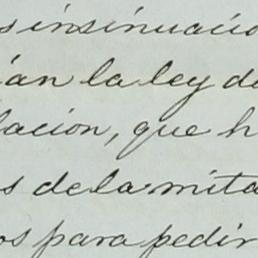 s insinuacio
ían la ley de
lacion, que h
s de la mita
os para pedir